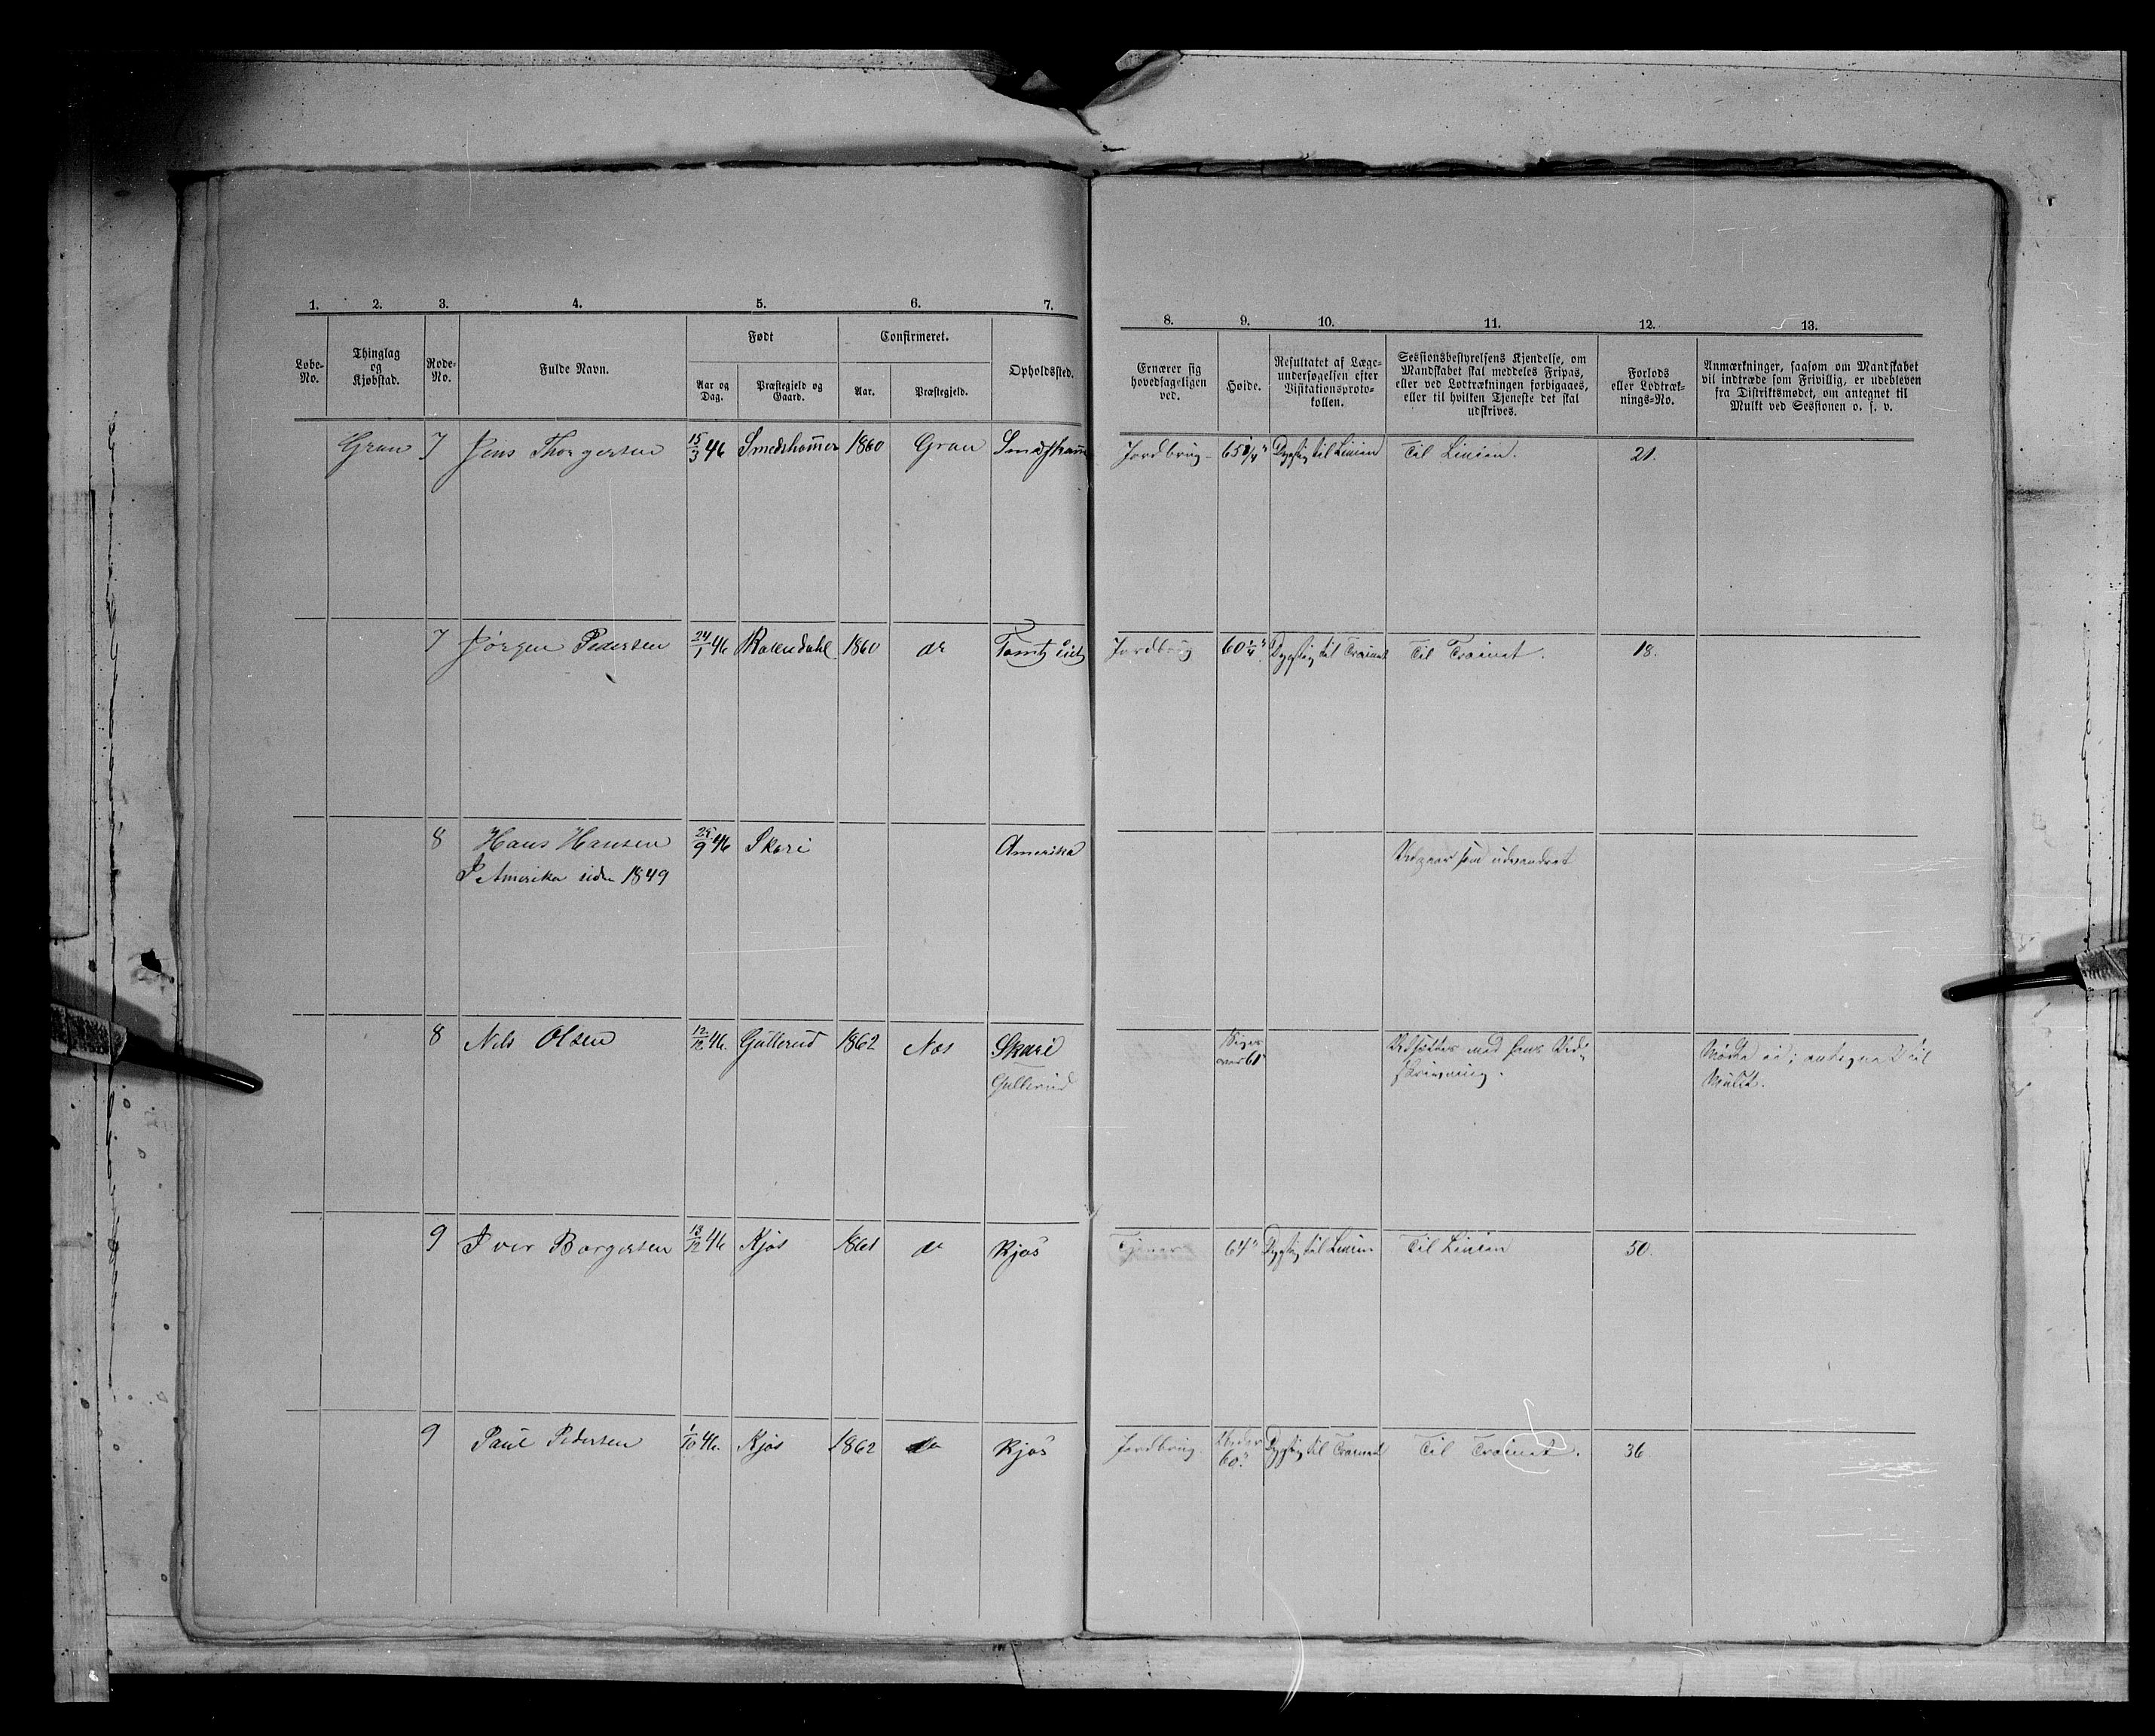 1. 2. 3. 4. 5. 6. 7.
Løbe-No.
Thinglag og Kjøbstad.
Rode-No.
Fulde Navn.
Født
Aar og Dag.
Præstegjeld og Gaard.
Confirmeret.
Aar.
Præstegjeld.
Opholdssted.
8. 9. 10. 11. 12. 13.
Ernærer sig
hovedsageligen
ved.
Høide.
Resultatet af Læge-
undersøgelsen efter
Visitationsproto-
kollen.
Sessionsbestyrelsens Kjendelse, om
Mandskabet skal meddeles Fripas,
eller ved Lodtrækningen forbigaaes,
eller til hvilken Tjeneste det skal
udskrives.
Forlods
eller Lodtræk-
nings-No.
Anmærkninger, saasom om Mandskabet
vil indtræde som Frivillig, er udebleven
fra Distriktsmødet, om antegnet til
Mulkt ved Sessionen o. s. v.
Gran 7 Jens Thorgersen 15/3 46 Smedshammer 1860 Gran Jordbrug Dygtig til Linien Til Linien. 21.
7 Jørgen Pedersen 24/1 46 Rosendahl 1860 do Jordbrug 60 1/4" Dygtig til Trainet Til Trainet. 18.
8 Hans Hansen 46 Skari Amerika Udgaar som udvandret
I Amerika siden 1849
8 Nils Olsen 12/12 46. Gullerud 1862 Næs Skari over 61" Udsættes med hans Ud-
Gullerud skrivning. Mulkt.
9 Iver Borgersen 13/12 46 Kjøs 1861 do Kjøs Tjener 64" Dygtig til Linien Til Linien 50.
9 Paul Pedersen 1/10 46. Kjøs 1862 do Kjøs Jordbrug. Under 60" Dygtig til Trainet Til Trainet. 36